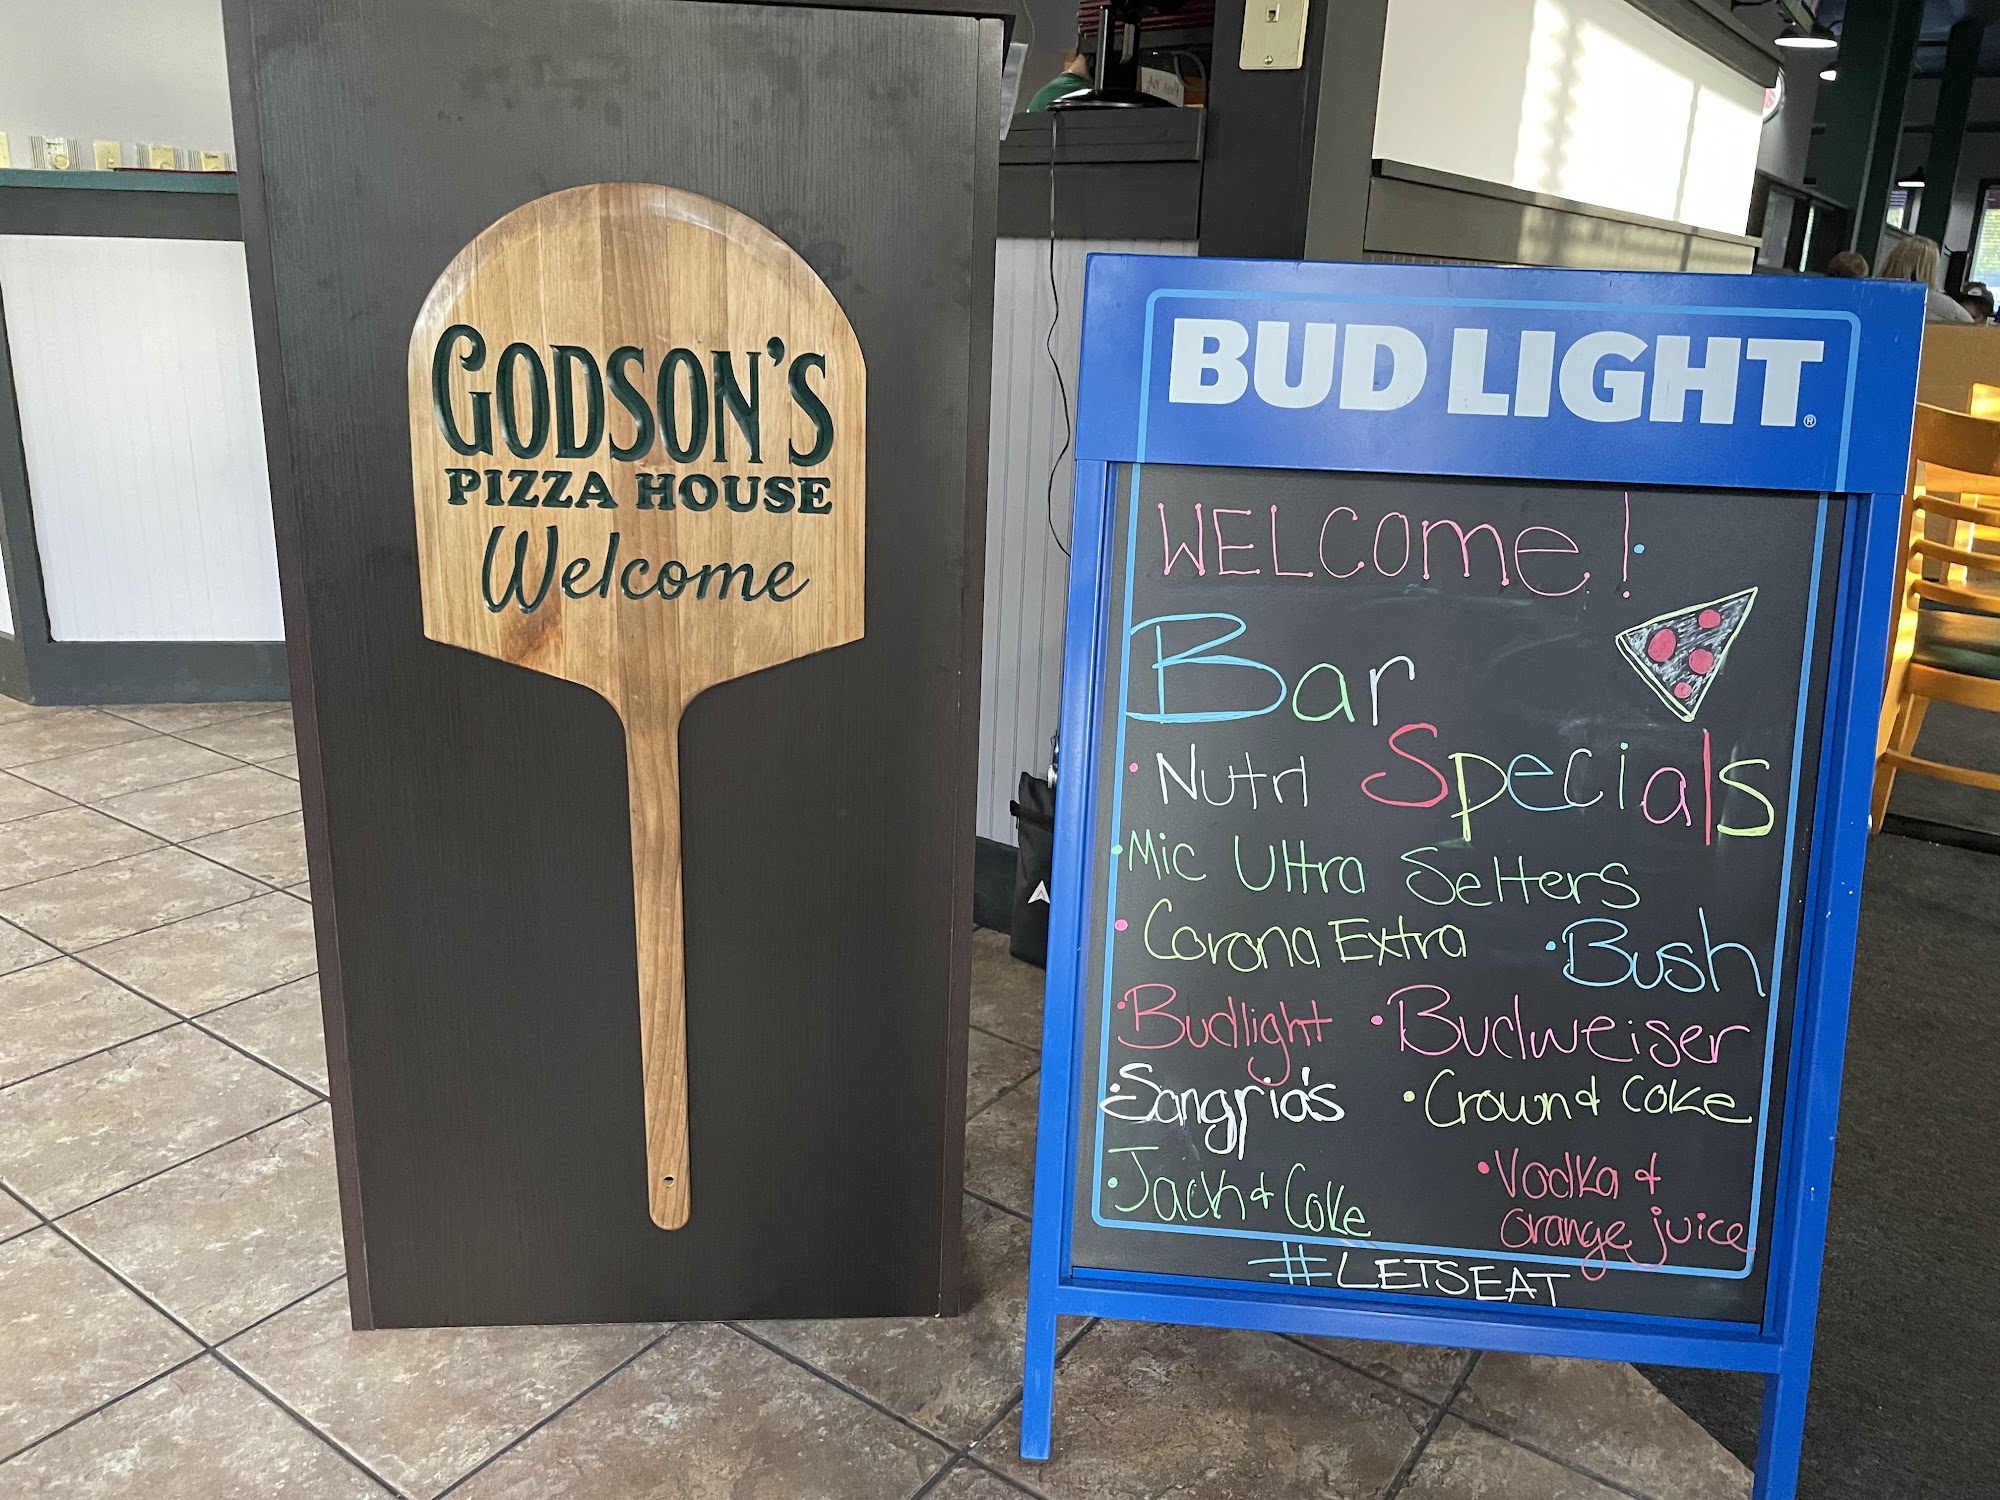 GODSON'S
PIZZA HOUSE
Welcome
BUD LIGHT®
WELCome!
Bar
Specials
• Nutrl
• Mic Ultra Seltzers
• Corona Extra • Bush
• Budlight • Budweiser
• Sangria's • Crown & Coke
• Jack & Coke • Vodka &
orange juice
#LETSEAT